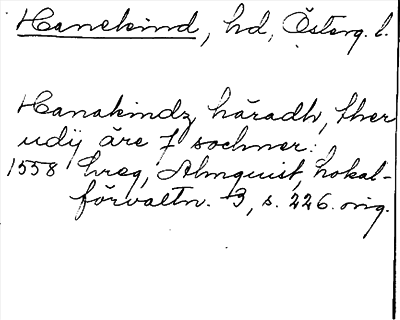 Hanekind, hd, Österg. l.
Hanakindz häradh, ther
udij äre 7 sochner.
1558 hreg, Almquist, Lokal-
förvaltn. 3, s. 226. orig.